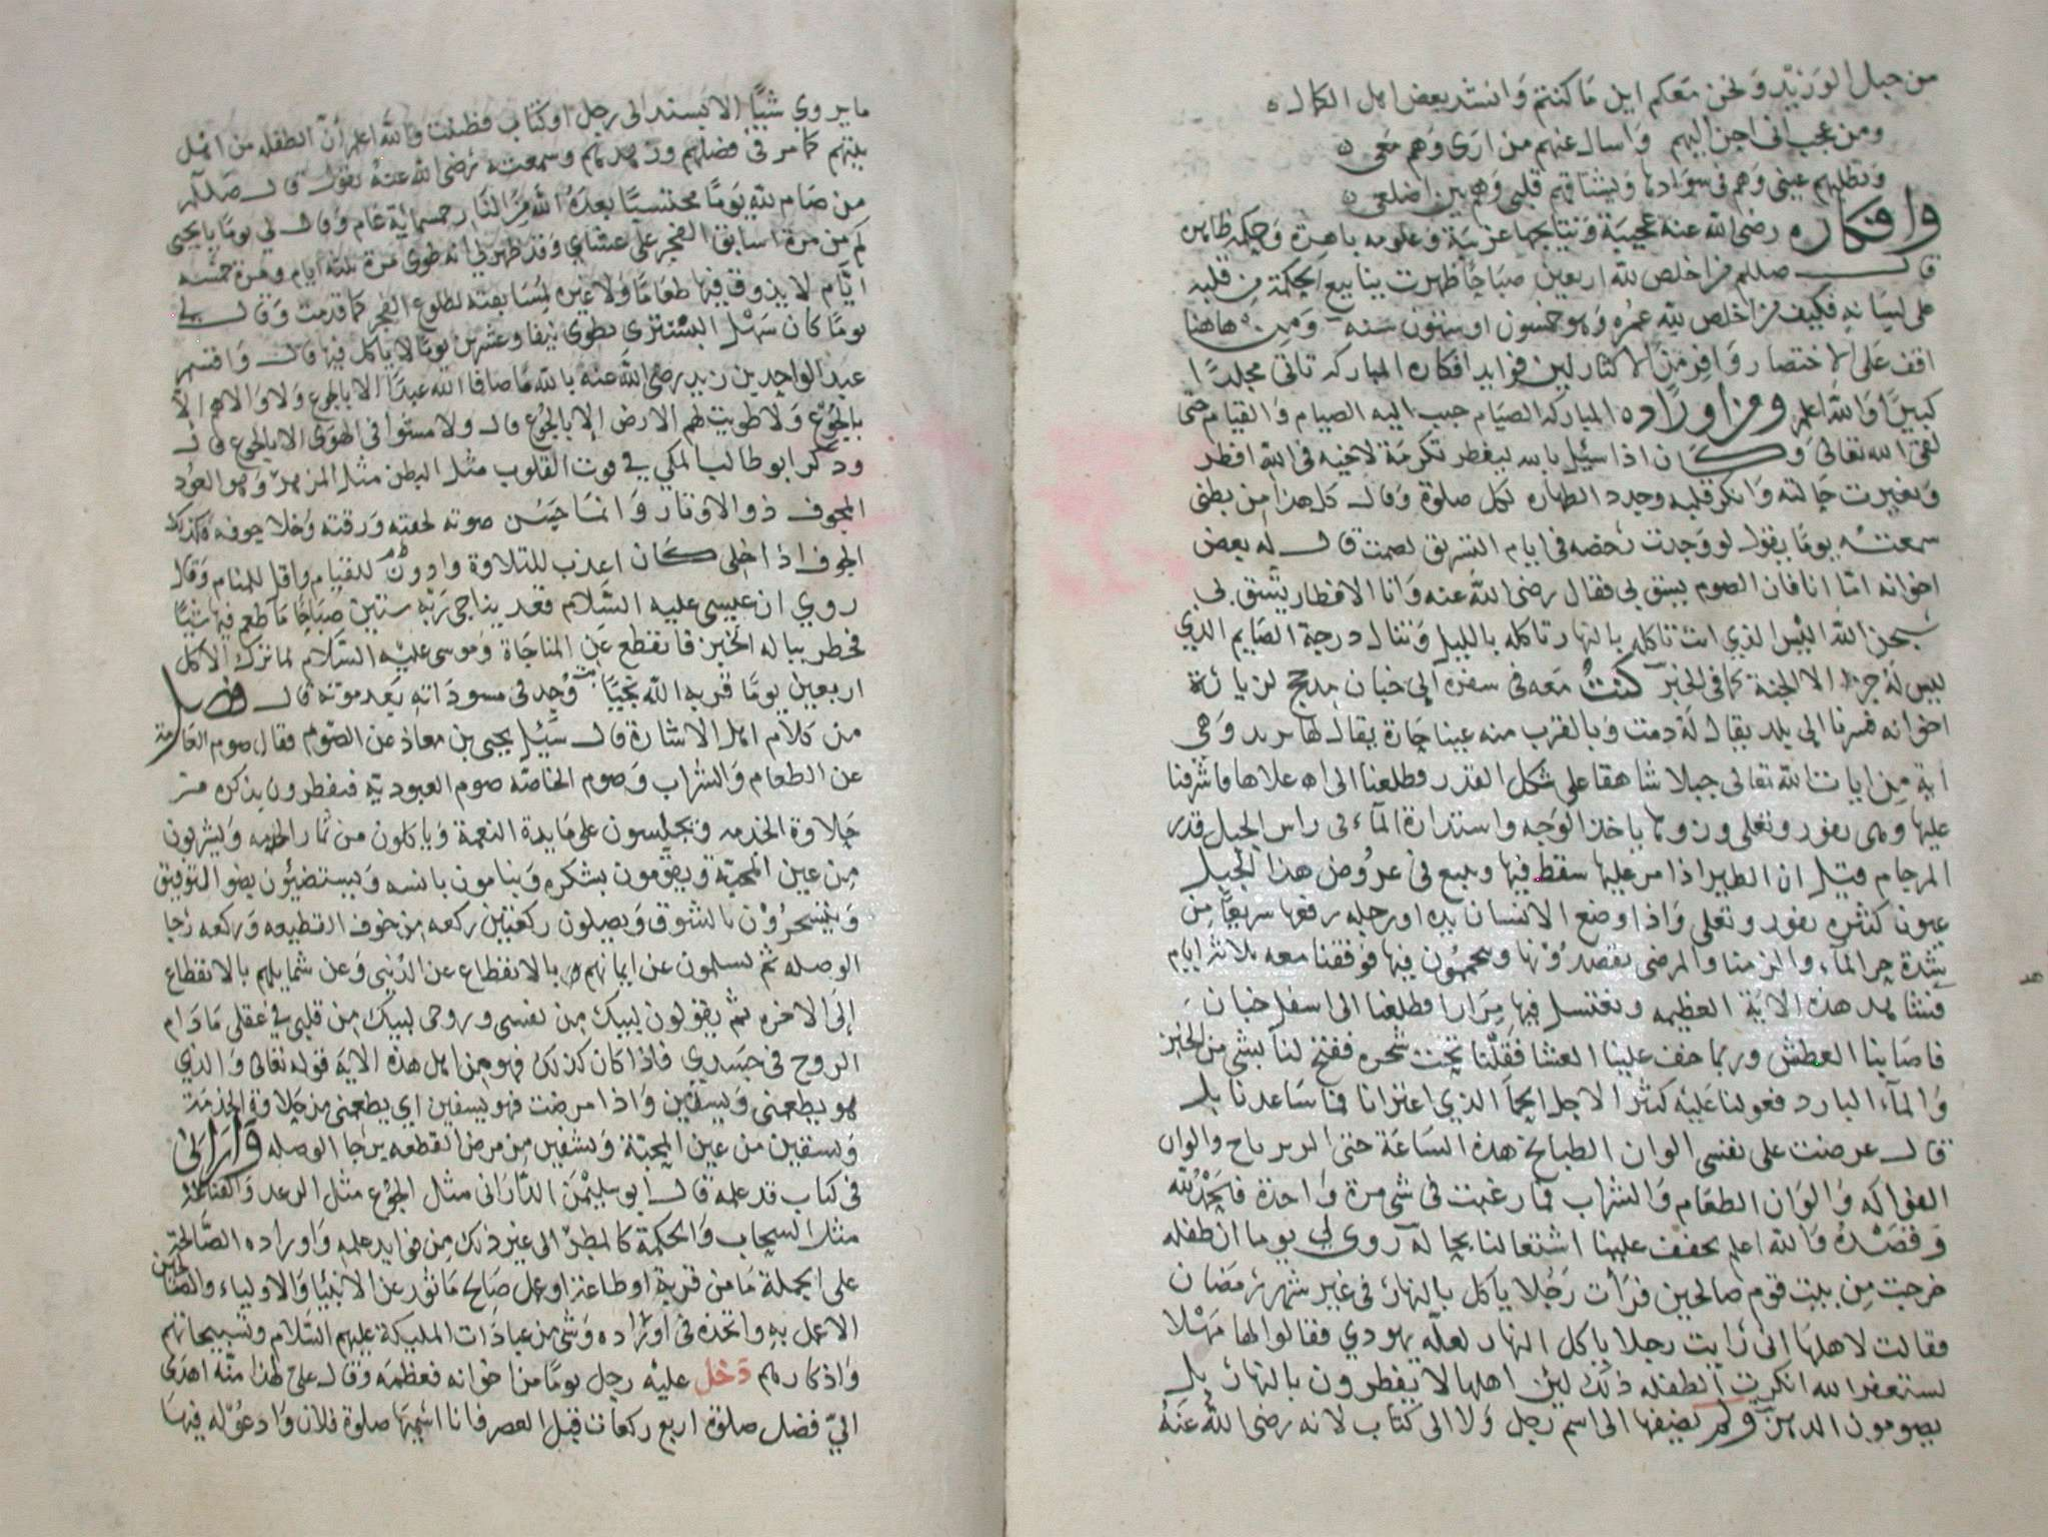 من حبل الوريد ونحن معكم اين ما كنتم وانشد بعض اهل الكمال ه
ومن عجب انى احن اليهم واسال عنهم من ارى وهم معى ه
وتطلبهم عينى وهم فى سوادها ويشتاقهم قلبى وهم بين اضلعى ه
وافكاره رضى الله عنه عجيبة ونتايجها غريبة وعلومه باهرة وحكمه ظاهره
قال صللم من اخلص لله اربعين صباحا ظهرت ينابيع الحكمة من قلبه
على لسانه فكيف من اخلص لله عمره وهو خمسون او ستون سنه ومن هاهنا
اقف على الاختصار وافر من الاكثار لين فوايد افكاره المباركه تاتى مجلدا
كبيرا والله اعلم ومن اوراده المباركه الصيام حبب اليه الصيام والقيام حتى
لقى الله تعالى وكان اذا سيل بالله ليفطر تكرمة لاخيه فى الله افطر
وتغيرت حالته وانكر قلبه وجدد الطهاره لكل صلوة وقال كل هذا من بطنى
سمعته يوما يقول لو وجدت رخصه فى ايام التشريق لصمت قال له بعض
اخوانه اما انا فان الصوم يشق بى فقال رضى الله عنه وانا الافطار يشق بى
سبحن الله اليس الذي انت تاكله بالنهار تاكله بالليل وتنال درجة الصايم الذي
ليس له جزا الا الجنة كما فى الخبر كنت معه فى سفره الى خبان مدحج لزيارة
اخوانه فسرنا الى بلد يقال له دمت وبالقرب منه عينا حارة يقال لها وهى
اية من ايات الله تعالى جبلا شاهقا على شكل القدر فطلعنا الى اعلاها فاشرفنا
عليها وهى تفور وتغلى ياخذ الوجه واستدارة المآء فى راس الجبل قدر
المرجام قيل ان الطير اذا مر عليها سقط فيها وينبع فى عروض هذا الجبل
عيونا كثيره تفور وتغلى واذا وضع الانسان يده او رجله رفعها سريعا من
شدة حر المآء والزمنا والمرضى يقصدونها ويحمون فيها فوقفنا معه ثلاثة ايام
نشاهد هذه الاية العظيمه ونغتسل فيها مرارا وطلعنا الى اسفل خبان
فاصابنا العطش وربما خف علينا العشا فقلنا تحت شجره ففتح لنا بشى من الخبز
والمآء البارد فعولنا عليه كثيرا لاجل الحما الذي اعترانا فما ساعدنا بل
قال عرضت على نفسى الوان الطبايخ هذه الساعة حتى الزرباج والوان
الفواكه والوان الطعام والشراب فما رغبت فى شى مرة واحدة فالحمد لله
وقصده والله اعلم يخفف علينا اشتغالنا بحاله روى لى يوما ان طفله
خرجت من بيت قوم صالحين فرات رجلا ياكل بالنهار فى غير شهر رمضان
فقالت لاهلها انى رايت رجلا ياكل النهار لعله يهودي فقالوا لها مهلا
نستغفر الله انكرت الطفله ذلك لين اهلها لا يفطرون بالنهار بل
يصومون الدهر ولم يضيفها الى اسم رجل ولا الى كتاب لانه رضى الله عنه
ما يروي شيا الا يسند الى رجل او كتاب فظننت والله اعلم ان الطفله من اهل
بيتهم كما مر فى فضلهم وزهدهم وسمعته رضى الله عنه يقول قال صللم
من صام لله يوما محتسبا بعده الله من النار خمسماية عام وقال لى يوما يا يحيى
كم من مرة اسابق الفجر على عشاي وقد ظهر لى انه طوى مرة ثلثة ايام ومرة خمسه
ايام لا يذوق فيها طعاما ولا غيره لمسابقته لطلوع الفجر كما قدمت وقال لى
يوما كان سهل التسترى يطوى نيفا وعشرين يوما لا ياكل فيها قال واقسم
عبد الواحد بن زيد رضى الله عنه بالله ما صافا الله عبدا الا بالجوع ولا والاهم الا
بالجوع ولا طويت لهم الارض الا بالجوع قال ولا مشوا فى الهوى الا بالجوع قال
وذكر ابو طالب المكي في قوت القلوب مثل البطن مثل المزهر وهو العود
المجوف ذو الاوتار وانما حسن صوته لخفته ورقته وخلا جوفه فكذلك
الجوف اذا خلى كان اعذب للتلاوة وادون للقيام واقل للمنام وقال
روي ان عيسى عليه السلام قعد يناجى ربه ستين صباحا ما طعم فيها شيا
فخطر بباله الخبز فانقطع عن المناجاة وموسى عليه السلام لما ترك الاكل
اربعين يوما قربه الله نجيا وجد فى مسوداته بعد موته قال فصل
من كلام اهل الاشارة قال سيل يحيى بن معاذ عن الصوم فقال صوم العامة
عن الطعام والشراب وصوم الخاصة صوم العبودية فيفطرون بذكره من
حلاوة الخدمه ويجلسون على مايدة النعمة وياكلون من ثمار ويشربون
من عين المحبة ويقومون بشكره وينامون بانسه ويستضيئون بضو التوفيق
ويتسحرون بالشوق ويصلون ركعتين ركعه من خوف القطيعه وركعه رجا
الوصله ثم يسلمون عن ايمانهم بالانقطاع عن الدنيى وعن شمايلهم بالانقطاع
الى الاخره ثم يقولون لبيك من نفسى وروحى لبيك من قلبى في عقلى مادام
الروح فى جسدي فاذا كان كذلك فهو من اهل هذه الاية قوله تعالى والذي
هو يطعمنى ويسقين واذا مرضت فهو يشفين اي يطعمنى من حلاوة الخدمة
ويسقين من عين المحبة ويشفين من مرض القطعه برجا الوصله وارانى
فى كتاب قد علمه قال ابو سليمن الدارانى مثل الجوع مثل الرعد والقناعة
مثل السحاب والحكمة كالمطر الى غير ذلك من فوايد علمه واوراده الصالحة
على الجملة ما من قربة او طاعة او عمل صالح ماثور عن الانبيا والاولياء والصالحين
الا عمل به واتخذه فى اوراده وشى من عبادات المليكة عليهم السلام وتسبيحاتهم
واذكارهم دخل عليه رجل يوما من اخوانه فعظمه وقال على لهذا منه اهدى
الي فضل صلوة اربع ركعات قبل العصر فانا اسميها صلوة فلان وادعو له فيها